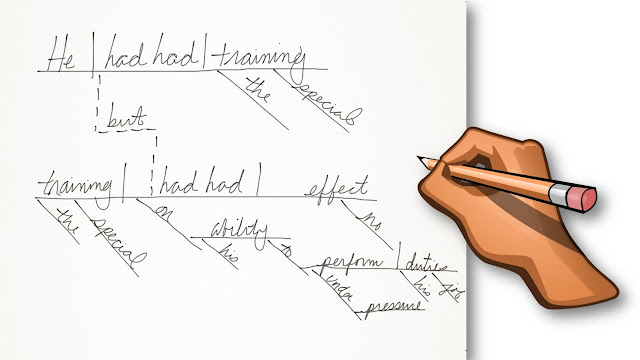 He had had training
the special
but
training had had effect
the special on no
ability
his to
perform duties
under his job
pressure